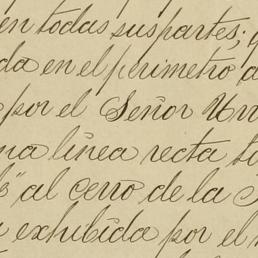 en todas sus partes; y
da en el perimetro
por el Señor
na linea recta
al cerro de la
exhibida por el